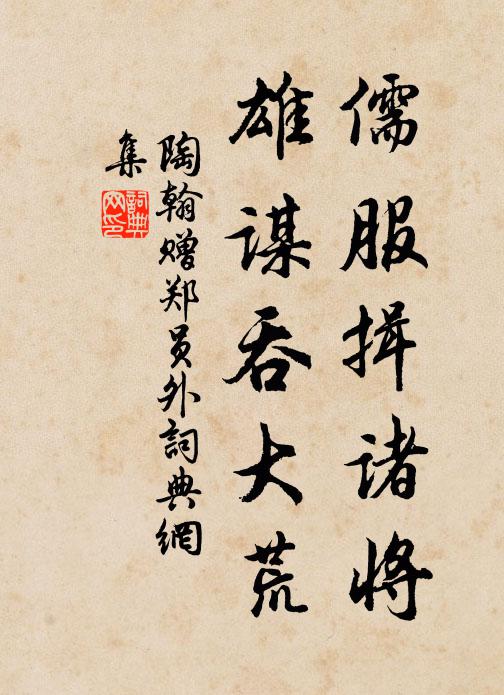 儒服揖诸将
雄谋吞大荒
陶翰赠郑员外詞典網
集
詞典网印